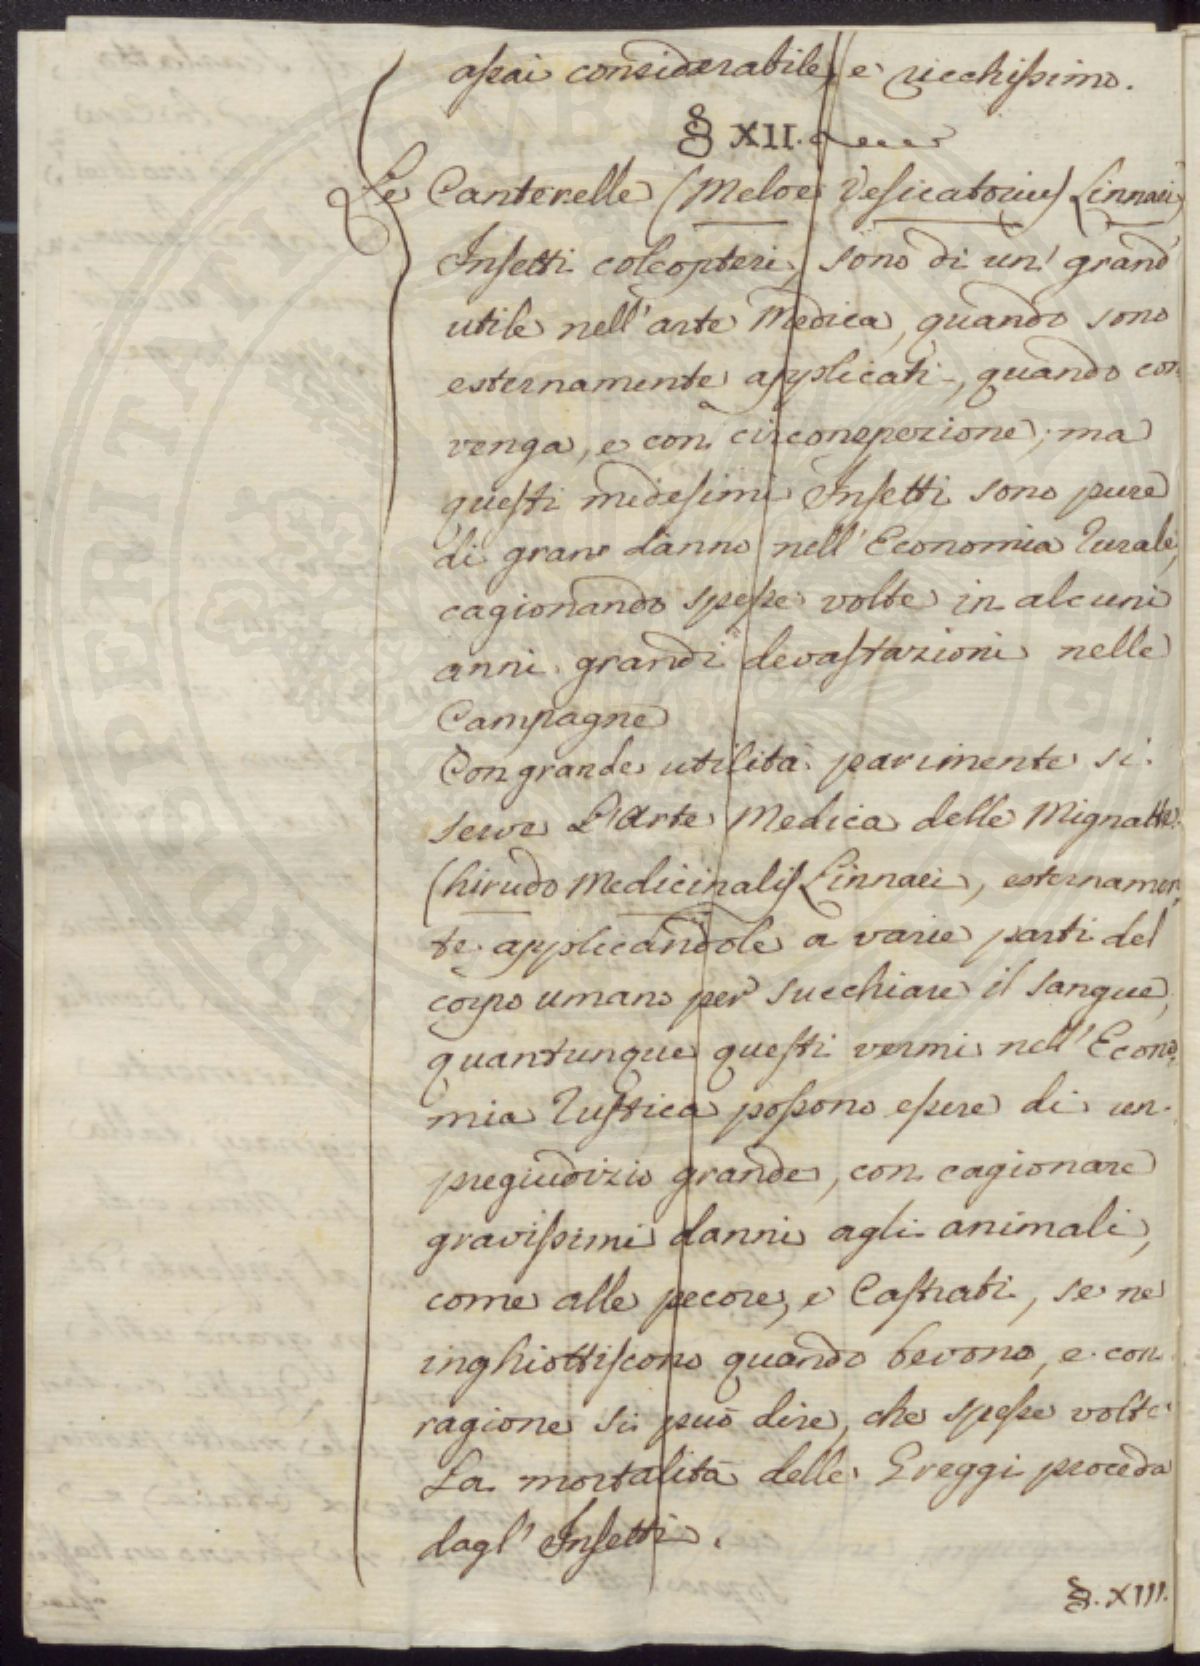 assai considerabile, e ricchissimo.
§ XII.
Le Canterelle (Meloe Vesicatorius Linnaei)
Insetti coleopteri, sono di un' grand'
utile nell'arte Medica, quando sono
esternamente applicati, quando con
venga, e con circonspezione; ma
questi medesimi Insetti sono pure
di gran danno nell'Economia rurale,
cagionando spesse volte in alcuni
anni grandi devastazioni nelle
Campagne
Con grande utilità parimente si
serve L'Arte Medica delle Mignatte
(hirudo Medicinalis Linnaei), esternamen
te applicandole a varie parti del
corpo umano per succhiare il sangue,
quantunque questi vermi nell'Econo
mia rustica possono essere di un
pregiudizio grande, con cagionare
gravissimi danni agli animali,
come alle pecore, e Castrati, se ne
inghiottiscono quando bevono, e con
ragione si può dire, che spesse volte
La mortalità delle Greggi proceda
dagl' Insetti.
§. XIII.